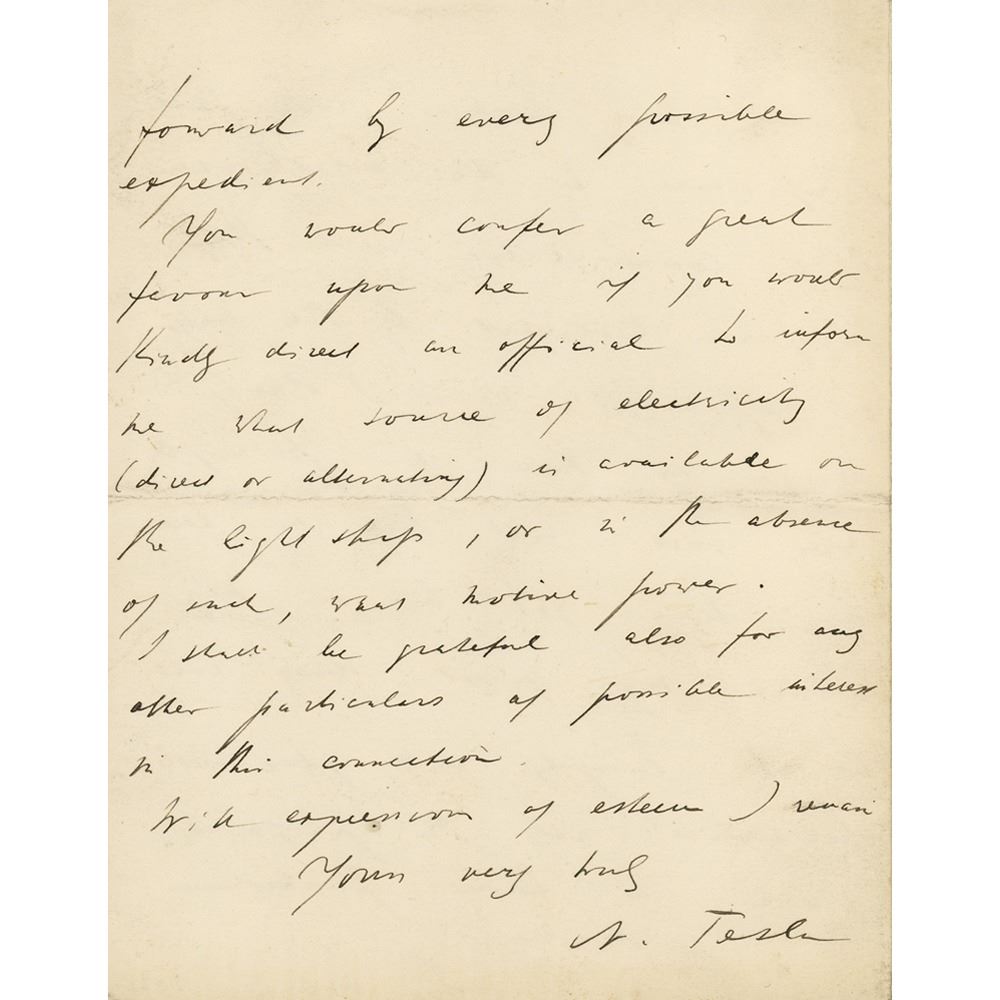 forward by every possible
expedient.
You would confer a great
favour upon me if you would
Kindly direct an official to inform
me what source of electricity
(direct or alternating) is available on
the light ships, or in the absence
of such, what motive power.
I shall be grateful also for any
other particulars of possible interest
in this connection.
With expressions of esteem I remain
Yours very truly
N. Tesla